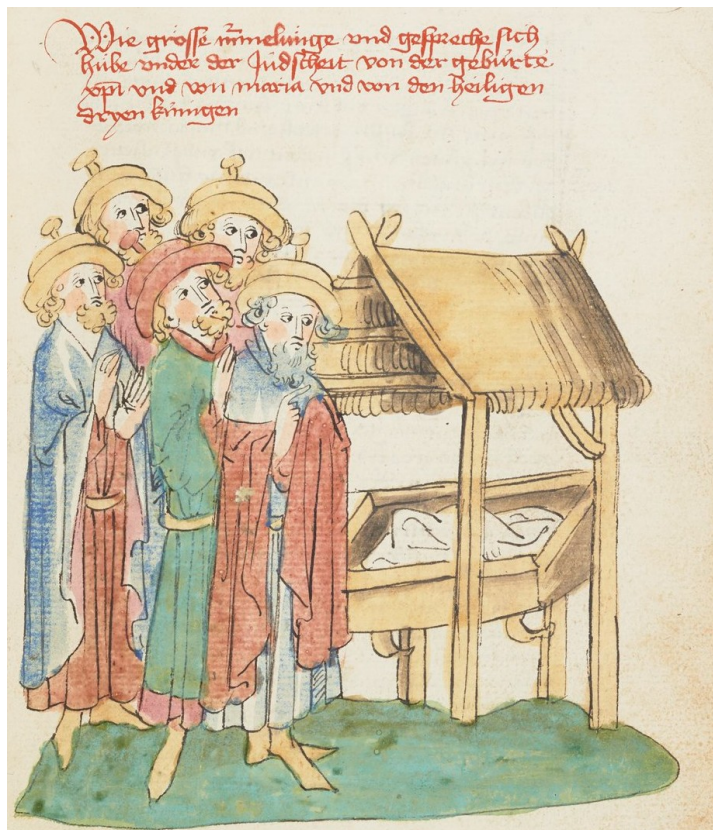 Wie grosse mͮmelunge vnd gespreche sich
hůbe vnder der Judscheit von der gebúrte
xp̄i vnd von maria vnd von den heiligen
dryen kúnigen